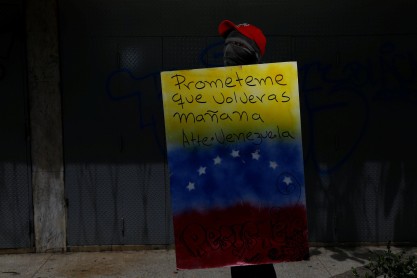 Prometeme
que volveras
mañana
Atte: Venezuela